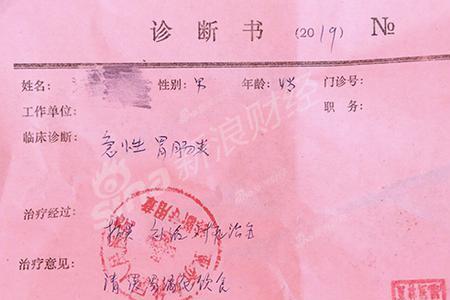 诊断书 (2019) №
姓名: 性别: 男 年龄: 门诊号:
工作单位: 职务:
临床诊断:
急性胃肠炎
新浪财经
治疗经过:
补液 对症治疗
治疗意见:
清淡易消化饮食